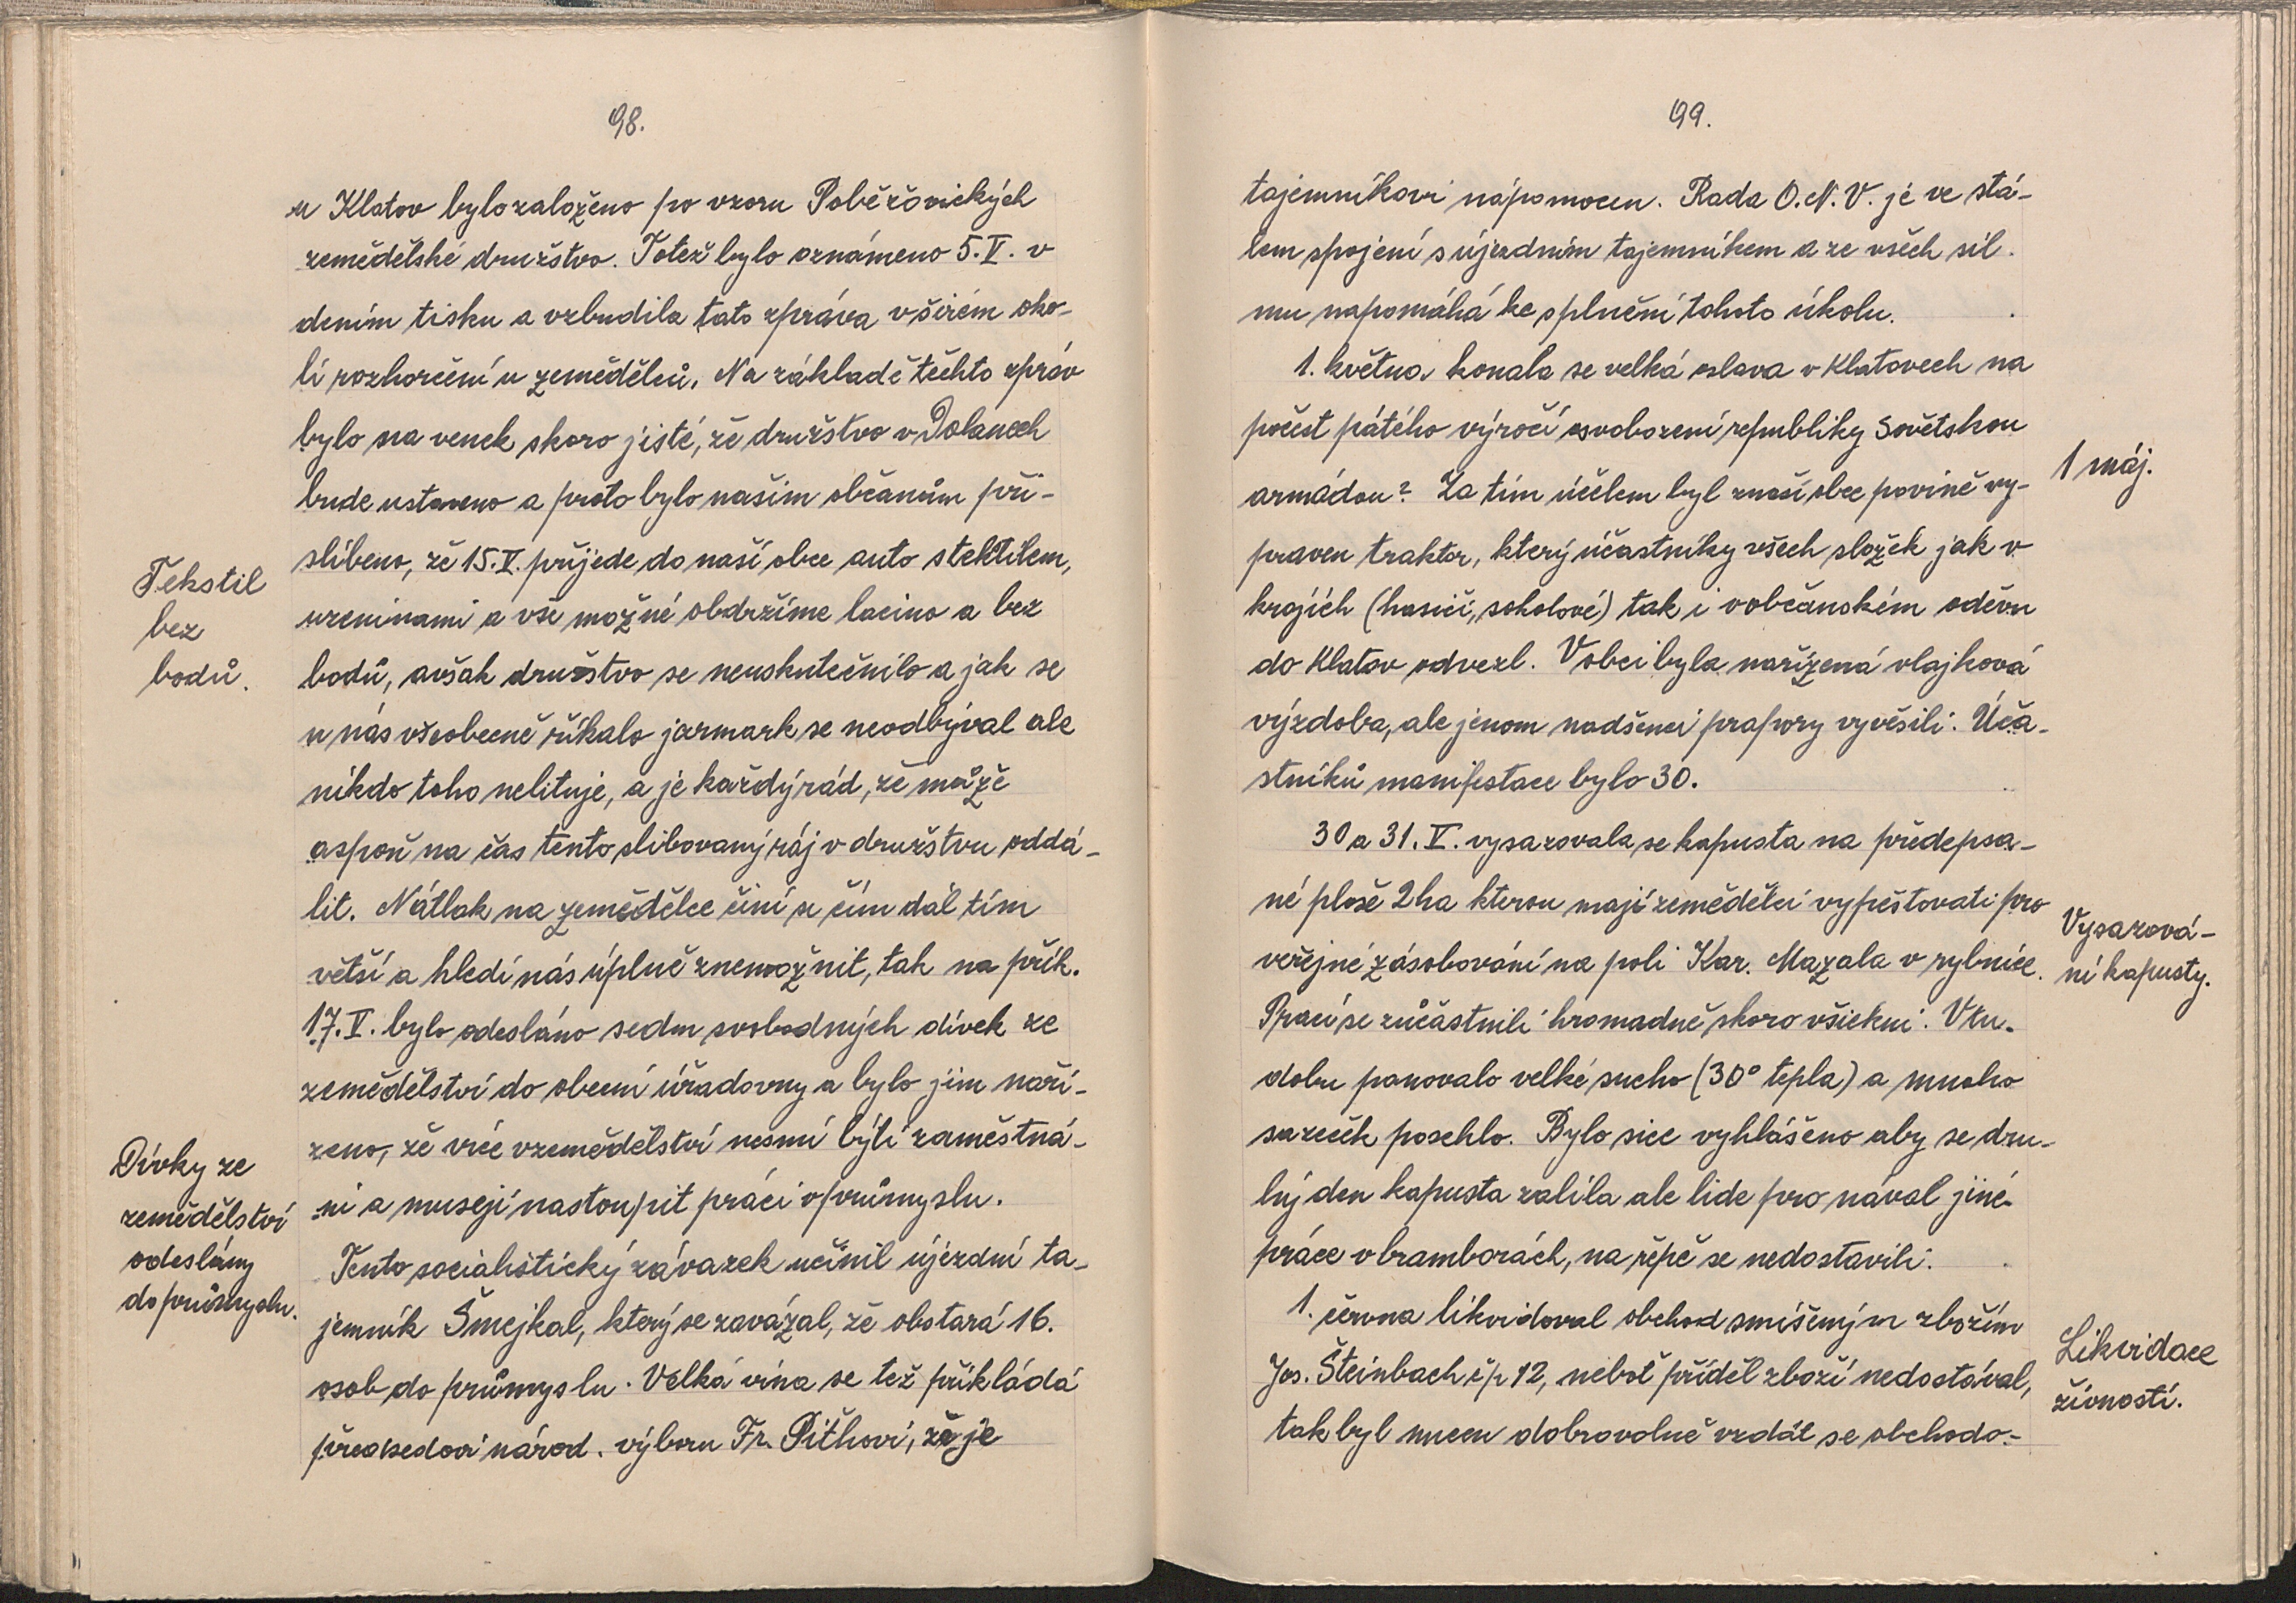 98.
u Klatov bylo založeno po vzoru Poběžovických
zemědělské družstvo. Totéž bylo oznámeno 5.V. v
dením tisku a vzbudila tato zpráva v širém oko-
lí rozhorčení u zemědělců. Na základě těchto zpráv
bylo na venek skoro jisté, že družstvo v Dolanech
bude ustaveno a proto bylo našim občanům při-
slíbeno, že 15.V. přijede do naší obce auto s tekstilem,
uzeninami a vše možné obdržíme lacino a bez
bodů, avšak družstvo se neuskutečnilo a jak se
u nás všeobecně říkalo jarmark se neodbýval ale
nikdo toho nelituje, a je každý rád, že může
aspoň na čas tento slibovaný ráj v družstvu oddá-
lit. Nátlak na zemědělce činí se čím dál tím
větší a hledí nás úplně znemožnit, tak na přík.
17.V. bylo odesláno sedm svobodných dívek ze
zemědělství do obecní úřadovny a bylo jim naří-
zeno, že více v zemědělství nesmí býti zaměstná-
ni a musejí nastoupit práci v průmyslu.
Tento socialistický závazek učinil újezdní ta-
jemník Šmejkal, který se zavázal, že obstará 16.
osob do průmyslu. Velká vina se též přikládá
předsedovi národ. výboru Fr. Pithovi, že je
Tekstil
bez
bodů.
Dívky ze
zemědělství
odeslány
do průmyslu.
99.
tajemníkovi nápomocen. Rada O.N.V. je ve stá-
lem spojení s újezdním tajemníkem a ze všech sil
mu napomáhá ke splnění tohoto úkolu.
1. května konala se velká oslava v Klatovech na
počest pátého výročí osvobození republiky Sovětskou
armádou? Za tím účelem byl z naší obce povině vy-
praven traktor, který účastníky všech složek jak v
krojích (hasiči, sokolové) tak i v občanském oděvu
do Klatov odvezl. V obci byla nařízená vlajková
výzdoba, ale jenom nadšenci prapory vyvěsili. Úča-
stníků manifestace bylo 30.
30 a 31. V. vysazovala se kapusta na předepsa-
né ploše 2 ha kterou mají zemědělci vypěstovati pro
veřejné zásobování na poli Kar. Mazala v rybníce.
Prací se zůčastnili hromadně skoro všickni. V tu-
dobu panovalo velké sucho (30° tepla) a mnoho
sazeček poschlo. Bylo sice vyhlášeno aby se dru-
hý den kapusta zalila ale lide pro nával jiné
práce v bramborách, na řepě se nedostavili.
1. června likvidoval obchod smíšeným zbožím
Jos. Šteinbach čp 12, neboť příděl zboží nedostával,
tak byl nucen dobrovolně vzdát se obchodo-
1 máj.
Vysazová-
ní kapusty.
Likvidace
živností.